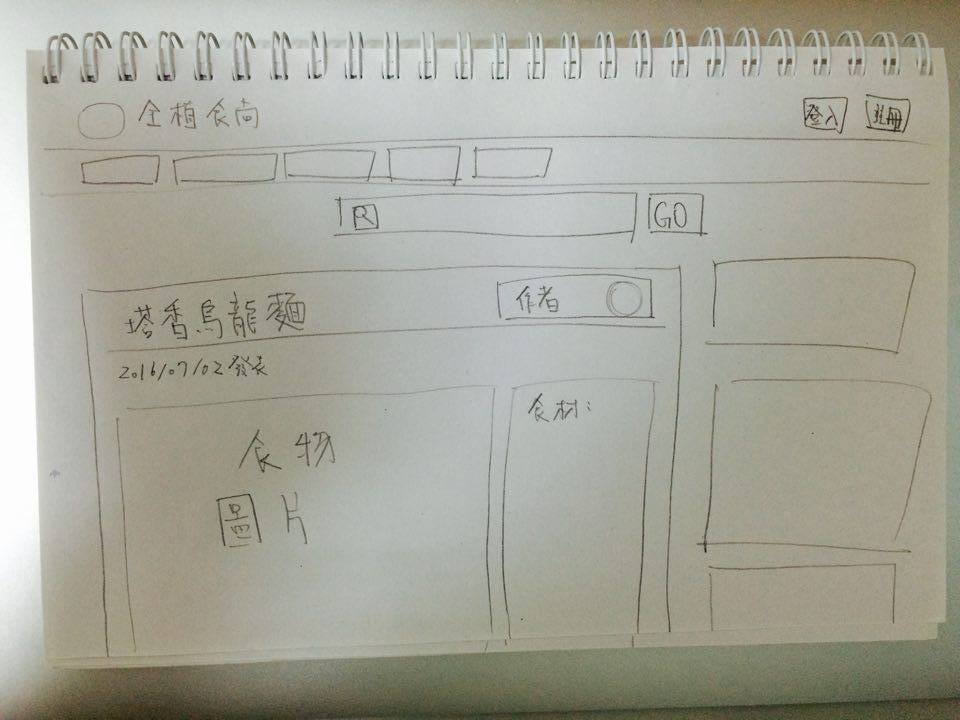 全植食尚
登入 註冊
R GO
塔香烏龍麵 作者
2016/07/02 發表
食材:
食物
圖片